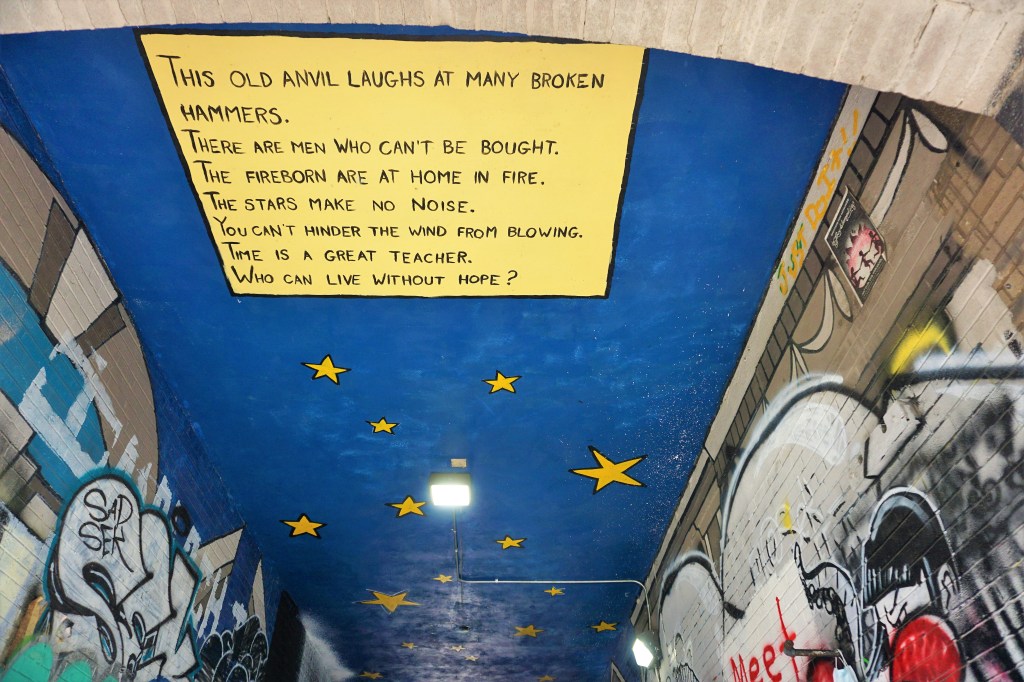 THIS OLD ANVIL LAUGHS AT MANY BROKEN
HAMMERS.
THERE ARE MEN WHO CAN'T BE BOUGHT.
THE FIREBORN ARE AT HOME IN FIRE.
THE STARS MAKE NO NOISE.
YOU CAN'T HINDER THE WIND FROM BLOWING.
TIME IS A GREAT TEACHER.
WHO CAN LIVE WITHOUT HOPE?
SAD
SER
Meet